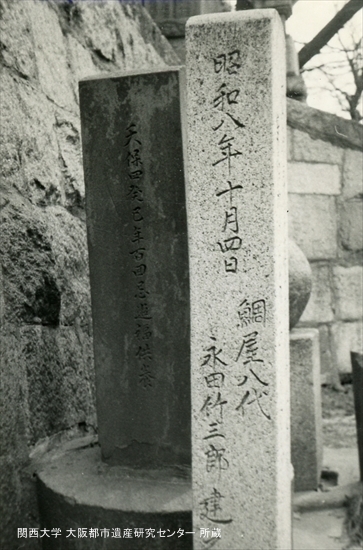 昭和八年十月四日
鯛屋八代
永田竹三郎建
天保四癸巳年百回忌追福供養
関西大学 大阪都市遺産研究センター 所蔵